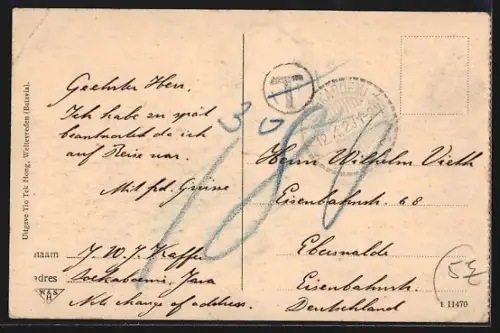 Geehrter Herr.
Ich habe zu spät
beantwortet da ich
auf Reise war.
Mit frd. Grüsse
naam J. W. J. Kaffer
adres Soekaboemi, Java
Note change of address.
Uitgave Tio Tek Hong, Weltevreden (Batavia).
W&S
T
30
12.4.29.1-2N
Herrn Wilhelm Vieth
Eisenbahnstr. 68
Eberswalde
Eisenbahnstr.
Deutschland
t 11470